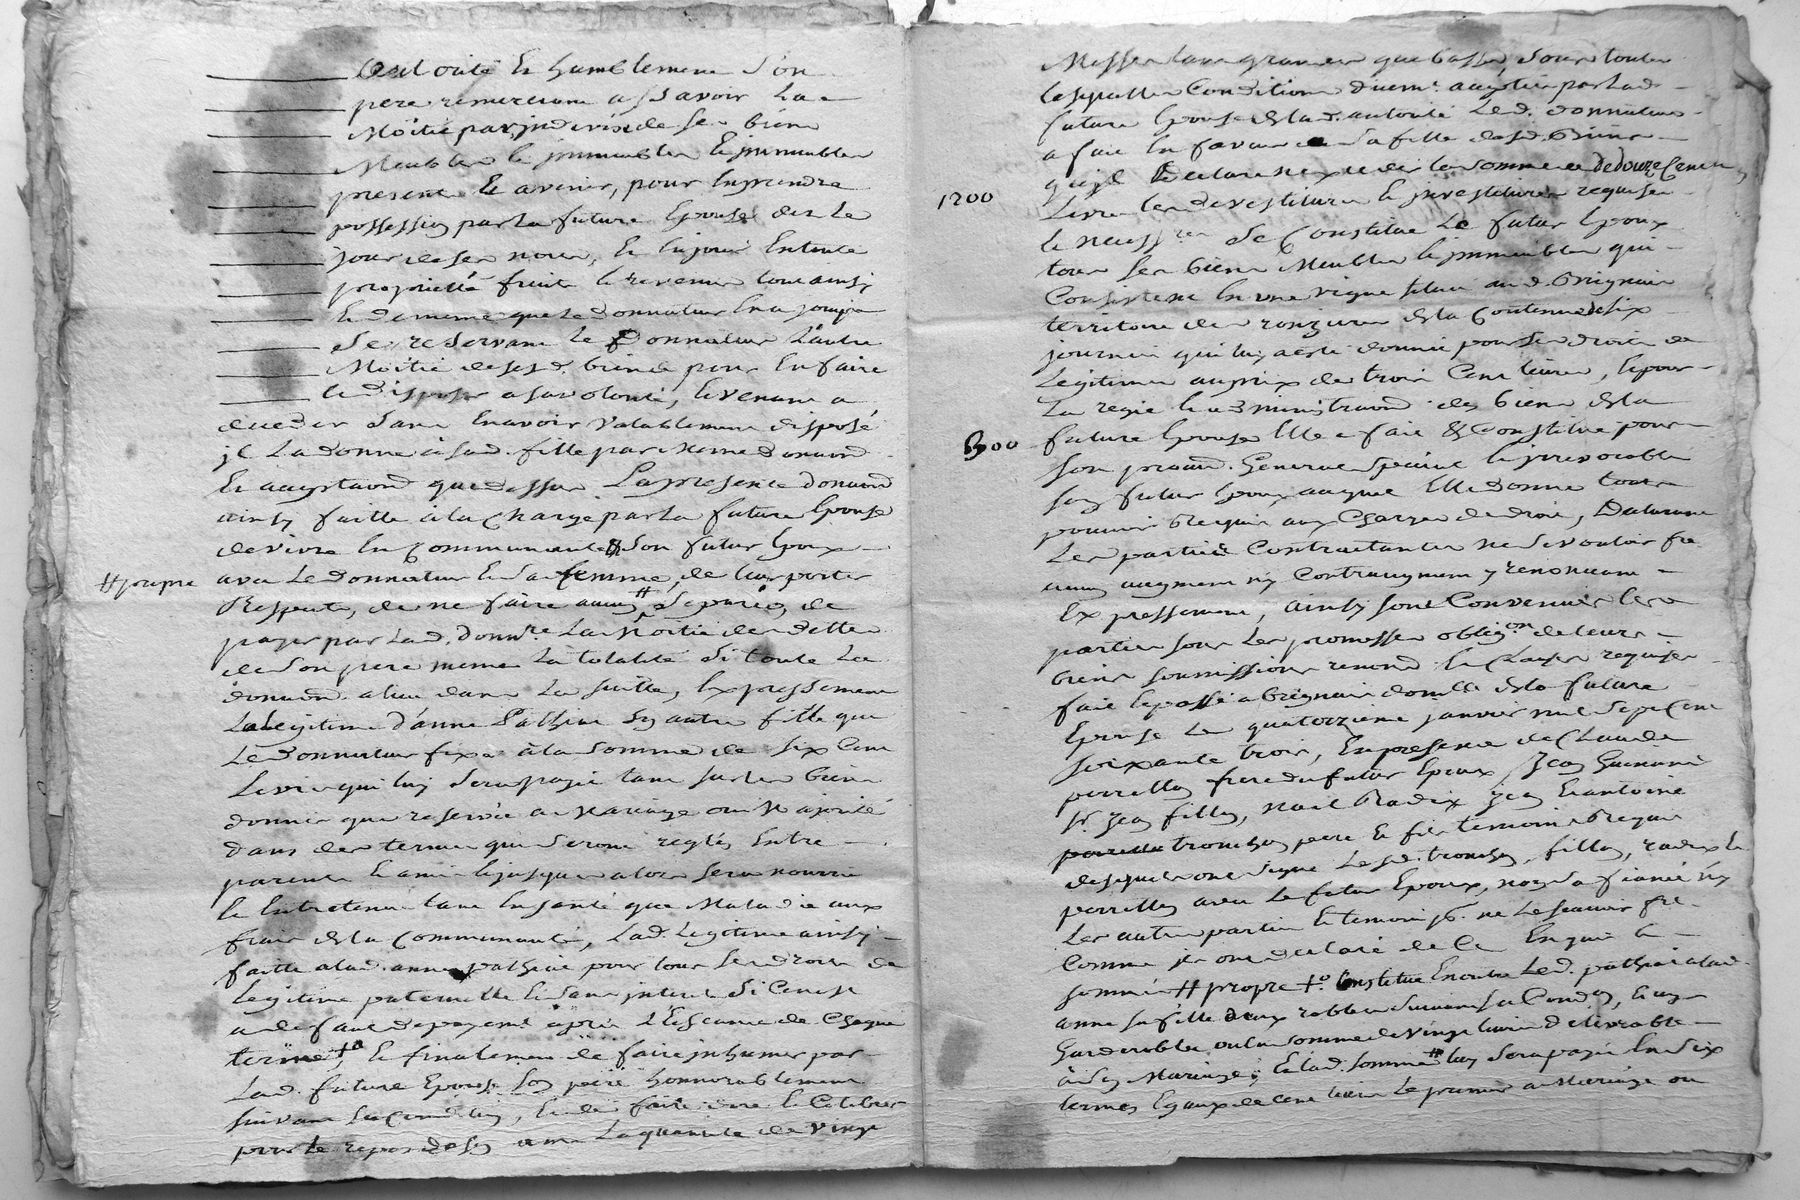 authorité et humblement son
pere remerciant a sçavoir la
Moitié par indivis de ses biens
Meubles et immeubles
presents et avenir, pour en prendre
possession par la future Epouse des le
jour de ses noces, et en jouir en toute
proprietté fruits et revenus tout ainsy
et de meme que le donnateur en a jouy
se reservant le donnateur l'autre
Moitié de sesd. biens pour en faire
et disposer a sa volonté, et venant a
deceder sans en avoir valablement disposé
il la donne à sad. fille par meme donaon
et acceptaon que dessus La presente donaon
ainsy faitte à la charge par la future Epouse
de vivre en communauté & son futur Epoux
avec le donnateur et sa femme, de leur porter
#propre
Respects, de ne faire aucun # de
payer par lad. donnre la moitié des dettes
de son pere meme la totalité si toute la
donaon a lieu dans la suitte, expressement
la legitime d'anne pathiai son autre fille que
le donnateur fixe à la somme de six cent
Livres qui luy sera payée tant sur les biens
donnés que reservés
dans des termes qui seront reglés entre
parents et amis et jusques alors sera nourrie
et entretenue tant en santé que Maladie aux
frais de la communauté, lad. Legitime ainsy
faitte a lad. anne pathiai pour tous ses droits de
legitime paternelle et sans interet si ce n'est
a deffaut de payemt après l'Escheance de chaque
terme +o, et finalement de faire inhumer par
lad. future Epouse son pere honnorablement
suivant sa condon, et de faire dire et celebrer
pour le repos de son ame la quantité de vingt
Messes tant grandes que basses, sous toutes
lesquelles conditions duemt acceptées par lad.
future Epouse de lad. authorité led. donnateur
a fait en faveur de sa fille desd. Biens
qu'il declare n'exceder la somme de douze cents
1200
Livres les devestitures et investitures requises
et necessres se constitue le futur Epoux
tous ses biens Meubles et immeubles qui
Consistent en une vigne située aud. Brignais
territoire de ronzieres de la Contenue de six
journées qui luy a esté donnée pour ses droits de
Legitime au prix de trois Cent livres, et pour
la regie et administraon des biens de la
300
future Epouse Elle a fait & Constitué pour
son procur. General special et irrevocable
son futur Epoux auquel Elle donne tout
pouvoir requis aux charges de droit, Declarant
les parties Contractantes ne vouloir fre
aucun augment ny Contreaugment y renoncant
Expressement, ainsy sont Convenues les
parties sous les promesses obligon de leurs
biens soumissions renond. et clauses requises
fait et passé a Brignais domille de la future
Epouse le quatorzieme janvier mil sept cent
soixante trois, En presence de Claude
perrellon frere du futur Epoux, Jean Guinand
sr. Jean fillon, noel Radix Jean Et antoine
tronchon pere et fils temoins requis
desquels ont signé lesd. tronchon, fillon, radix et
perrellon avec le futur Epoux, non sa fiancée ny
les autres parties et temoins pt. ne le scavoir fre
Comme ils ont declaré de Ce Enquis et
sommés # propre +o. Constitue En outre led. pathiai a lad.
anne sa fille deux robbes suivant sa Condon, et un
Garderobbe ou la somme de vingt livres delivrable
à son Mariage; Et lad. somme # luy sera payée En six
termes Egaux de cent livres le premier au Mariage ou